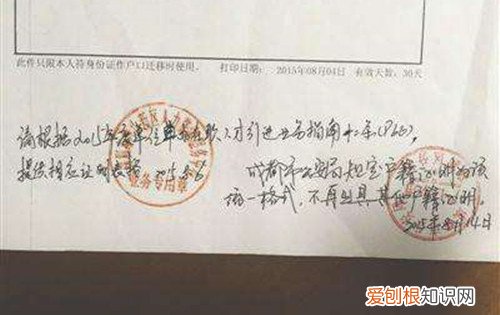 此件只限本人持身份证作户口迁移时使用。 打印日期：2015年08月04日 有效天数：30天
请根据2015年度单位单办在职人才引进业务指南十二条(P66),
提供相应证明表格 2015.8.6
成都市公安局规定户籍证明为该
统一格式，不再出具其他户籍证明。
2015年8月14日
爱刨根知识网
www.baogen.com